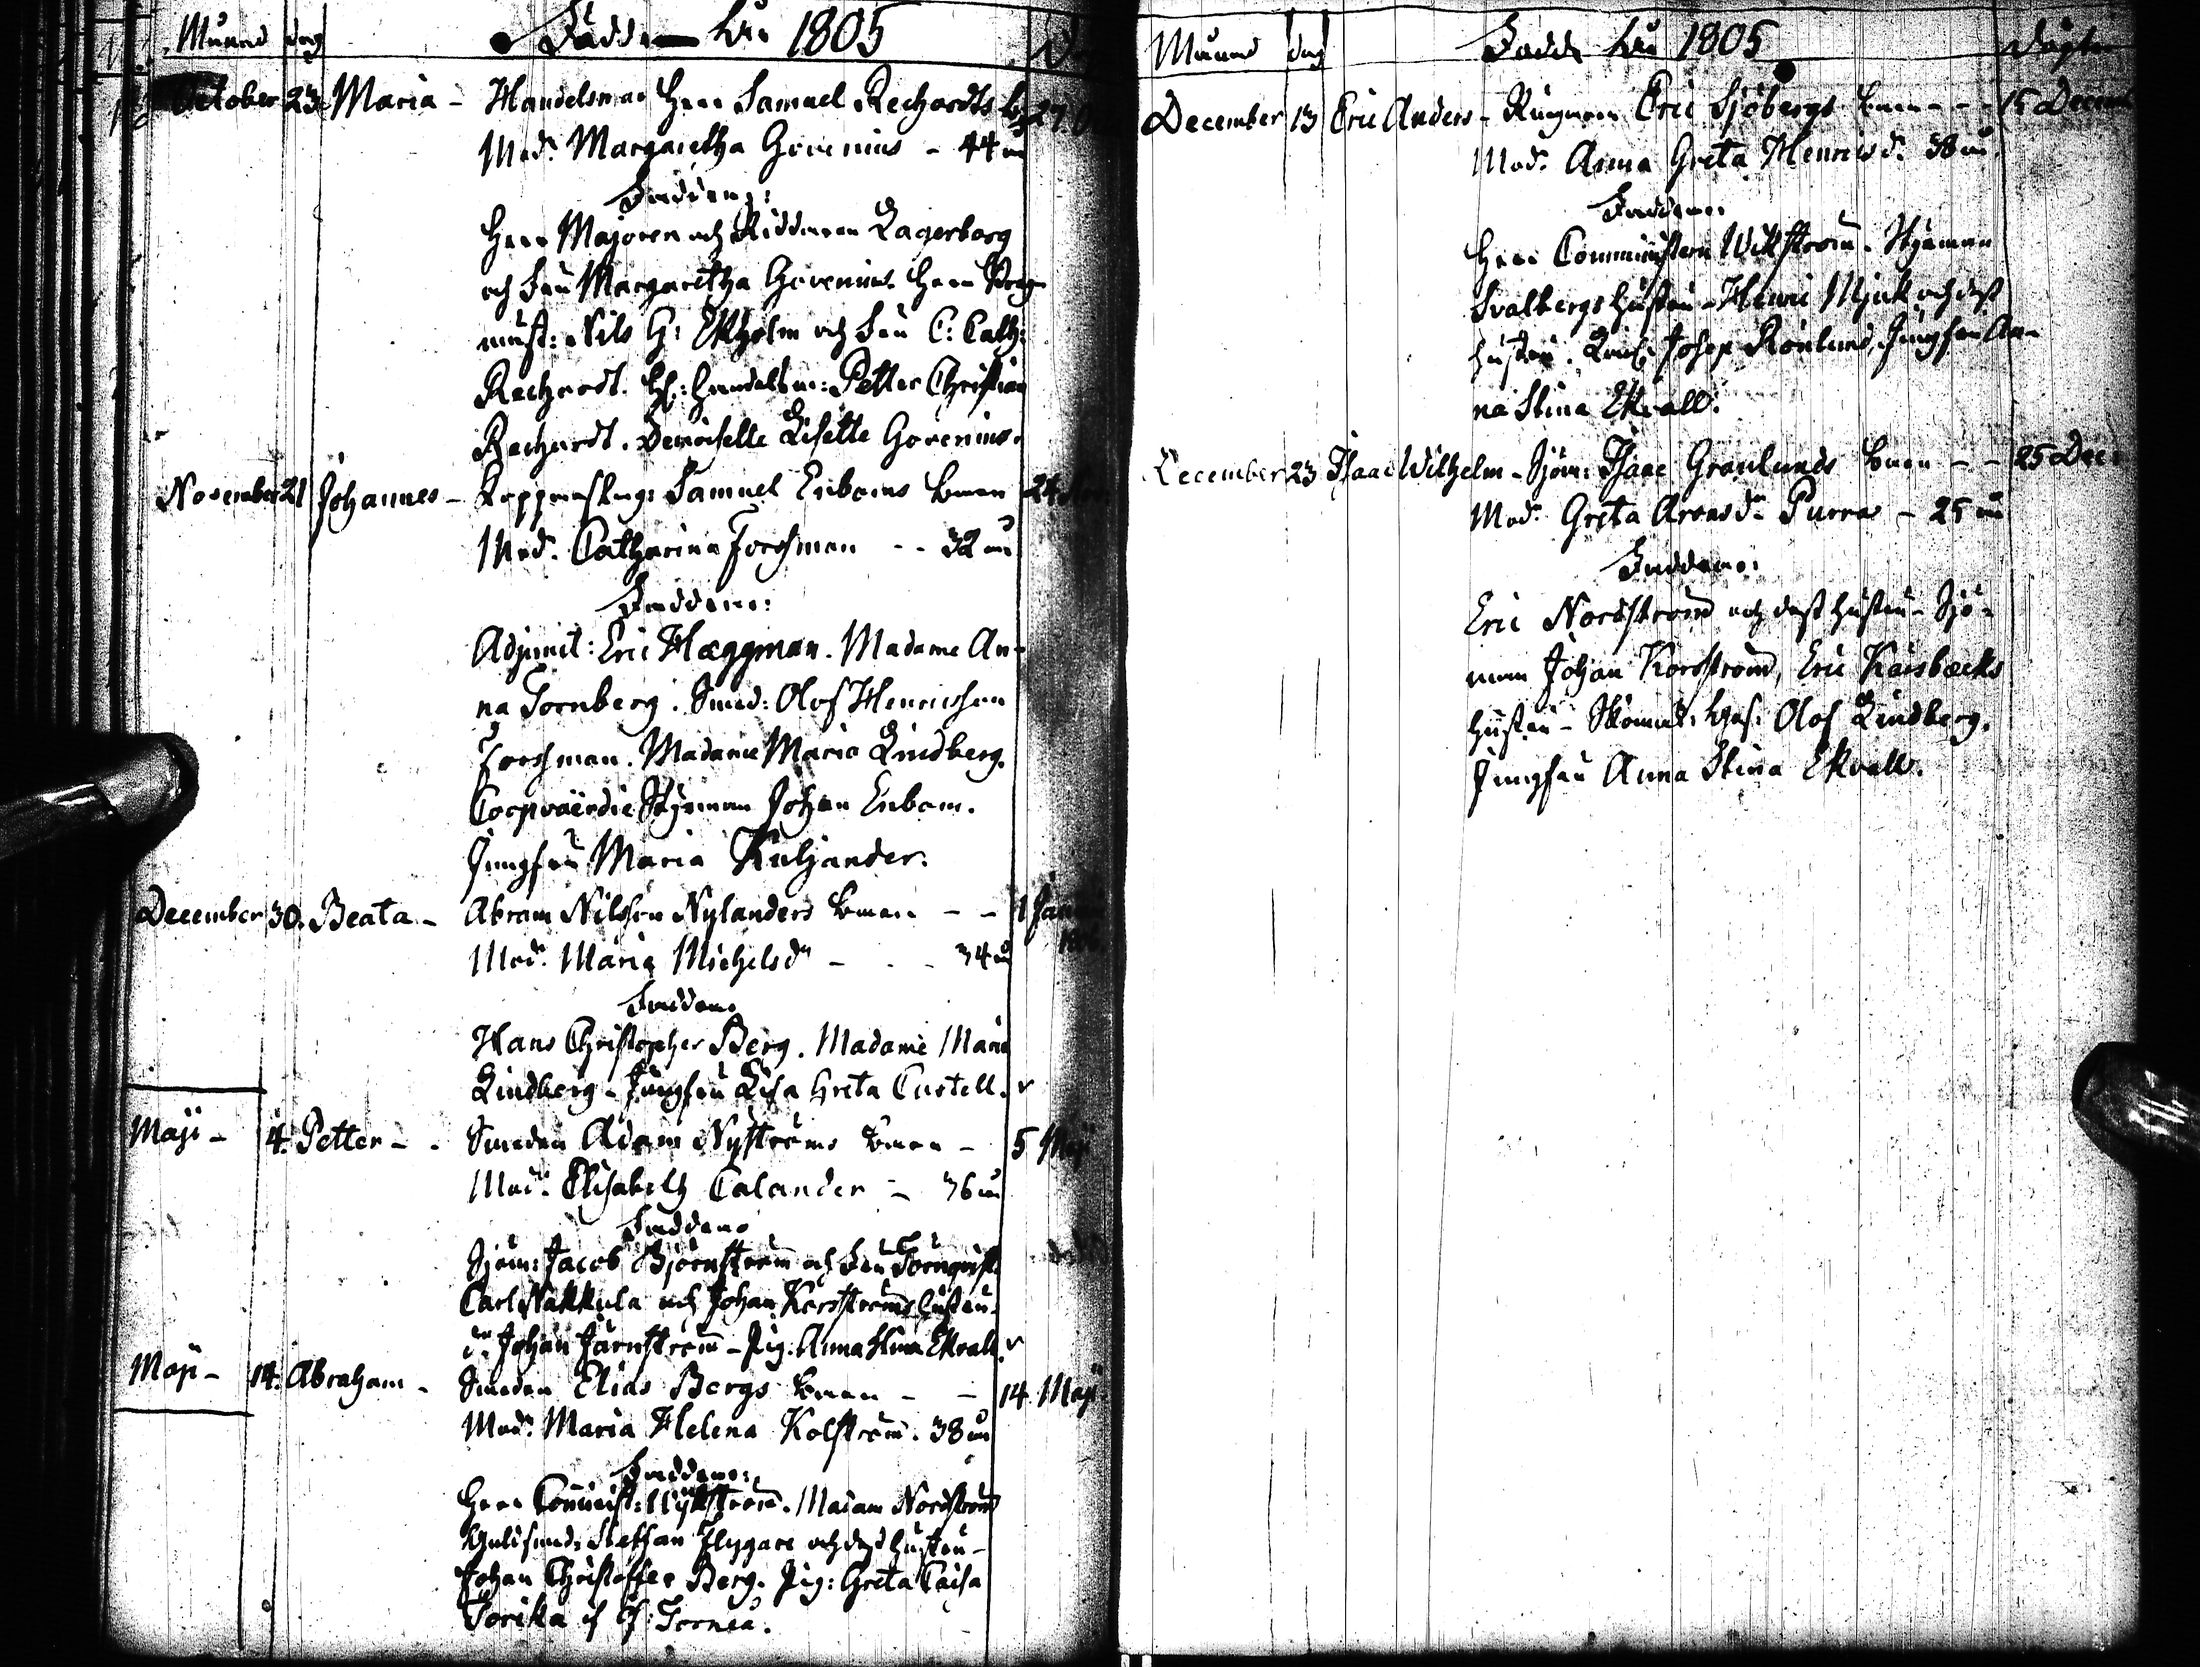 Månad dag Födde År 1805
October 23 Maria - Handelsman Herr Samuel Rechardts b. 27 O
Mod. Margaretha Govenius - 44 år
Faddrar:
Herr Majoren och Riddaren Lagerborg
och Fru Margaretha Govenius. Herr
Nils G: Ekholm och Fru C: Cath:
Rechardt. Handelsm: Petter Christian
Rechardt. Demoiselle Lisette Govenius.
November 21 Johannes - Kopparslag: Samuel Enboms barn 24 Nov
Mod. Catharina Forssman - - 32 år
Faddrar:
Adjunct: Eric Hæggman. Madame An-
na Tornberg. Smed: Olof Henricsson
Forssman. Madame Maria Lindberg.
Coopvaerdie Styrman Johan Enbom.
Jungfru Maria Kuljander.
December 30. Beata - Abram Nilsson Nylanders barn - - 1 Janu
Mod. Maria Michelsdr - - - 34 år
Faddrar
Hans Christopher Berg. Madame Maria
Lindberg - Jungfru Lisa Greta Castell.
Maji - 4. Petter - - Smeden Adam Nyströms barn - 5 Maji
Mod. Elisabeth Calander - 36 år
Faddrar
Sjöm: Jacob Björnström och Fru Törnqvist.
Carl Nakkula och Johan Korsströms hustru.
dr. Johan Järnström - Pig: Anna Stina Ekvall.
Maji - 14. Abraham - Smeden Elias Bergs barn - - 14 Maji
Mod. Maria Helena Kolström. 38 år
Faddrar:
Herr Comminist: Wikström. Madam Nordström
Guldsmed: Staffan Flygare och dess hustru -
Johan Christoffer Berg. Pig: Greta Caisa
Torikka Torneå.
Månad dag Födde År 1805 Döpte
December 13 Eric Anders - Eric Sjöbergs barn - - - 15 Decem
Mod. Anna Greta Henricsdr. 38 år.
Faddrar:
Herr Comministern Wikström. Styrman
Svalbergs hustru - Henric Mjuk och dess
hustru. Josep Rönlund, Jungfru An-
na Stina Ekvall.
December 23 Isaac Wilhelm - Sjöm: Isaac Grönlunds barn - - 25 Dec:
Mod. Greta Arvasdr Purra - 25 år
Faddrar:
Eric Nordström och dess hustru - Sjö-
man Johan Korsström, Eric Karsbäcks
hustru - Skomak: Olof Lindberg.
Jungfru Anna Stina Ekvall.